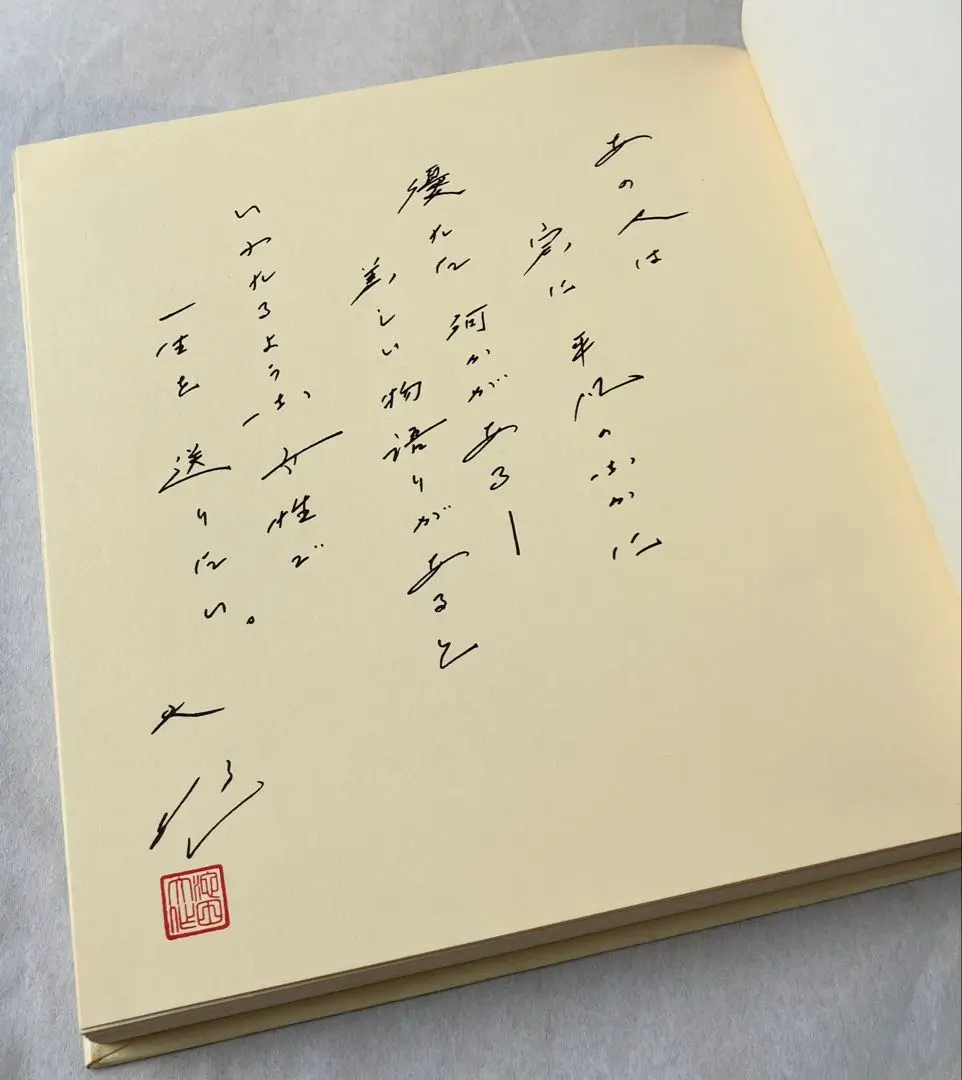 あの人は
実に平凡のなかに
優れた何かがある―
美しい物語りがあると
いわれるような女性で
一生を送りたい。